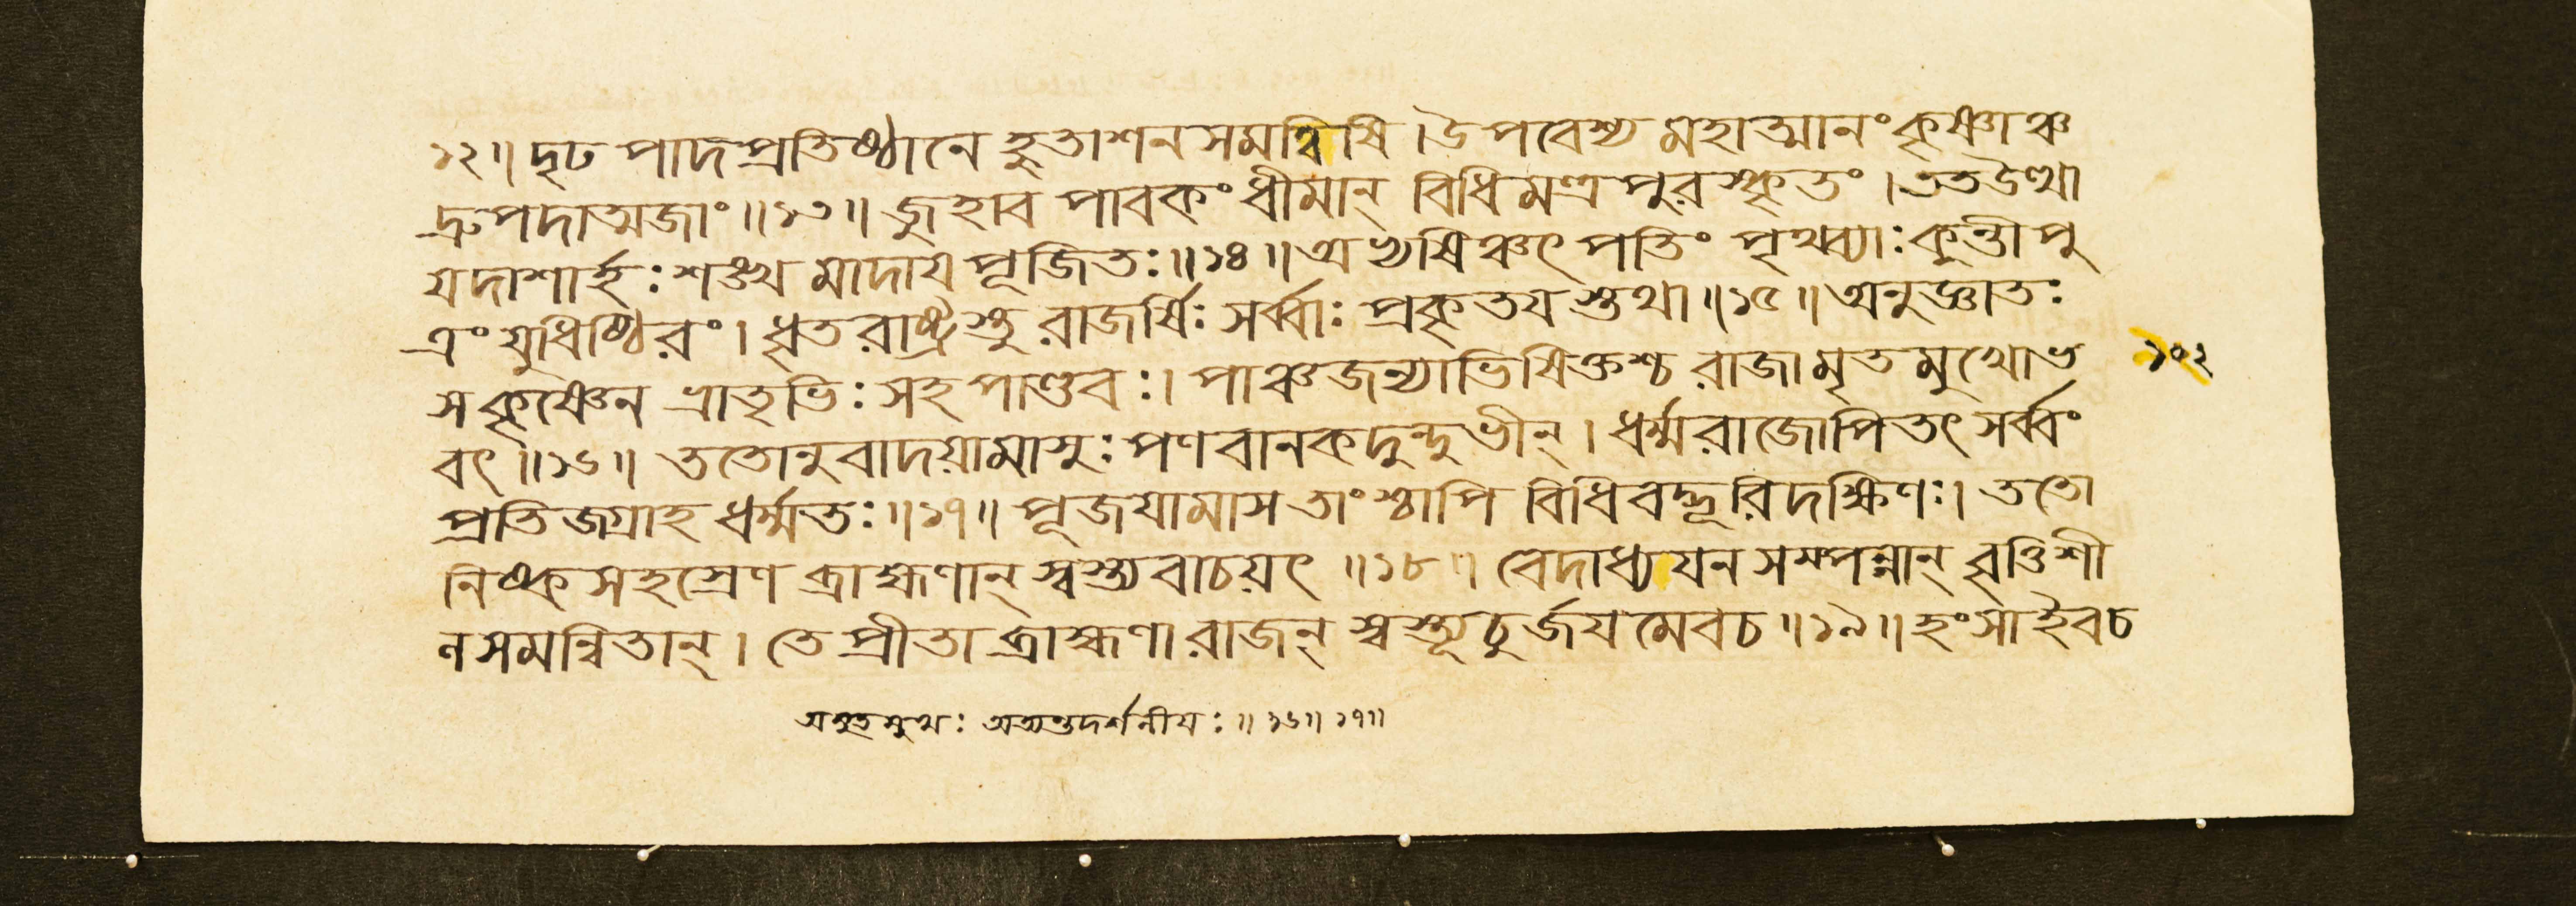 ১২॥ দৃঢ পাদপ্রতিষ্ঠানে হুতাশনসমন্বিষি।উপবেশ্য মহাত্মানং কৃষ্ণাঞ্চ
দ্রুপদাত্মজাং॥১৩॥ জুহাব পাবকং ধীমান্ বিধিমন্ত্রপুরস্কৃতং।তত উত্থা
যদাশার্হঃ শঙ্খমাদায পূজিতঃ॥১৪॥অভ্যষিঞ্চৎ পতিং পৃথব্যাঃ কুন্তীপু
ত্রং যুধিষ্ঠিরং। ধৃতরাষ্ট্রস্তু রাজর্ষিঃ সর্ব্বাঃ প্রকৃতযস্তথা॥১৫॥অনুজ্ঞাতঃ
সকৃষ্ণেন ভ্রাতৃভিঃ সহ পাণ্ডবঃ। পাঞ্চজন্যাভিষিক্তশ্চ রাজামৃতমুখোভ
১০২
বৎ॥১৬॥ ততোনুবাদয়ামাসুঃ পণবানকদুন্দুভীন্। ধর্ম্মরাজোপি তৎ সর্ব্বং
প্রতিজগ্রাহ ধর্ম্মতঃ॥১৭॥ পূজযামাস তাংশ্চাপি বিধিবদ্ভূরিদক্ষিণঃ। ততো
নিষ্কসহস্রেণ ব্রাহ্মণান্ স্বস্ত্যবাচয়ৎ॥১৮॥ বেদাধ্যযনসম্পন্নান্ ধৃতিশী
নসমন্বিতান্। তে প্রীতা ব্রাহ্মণা রাজন্ স্বস্ত্যূচুর্জযমেবচ॥১৯॥হংসাইবচ
অমৃতমুখঃ অত্যন্তদর্শনীযঃ॥১৬॥১৭॥